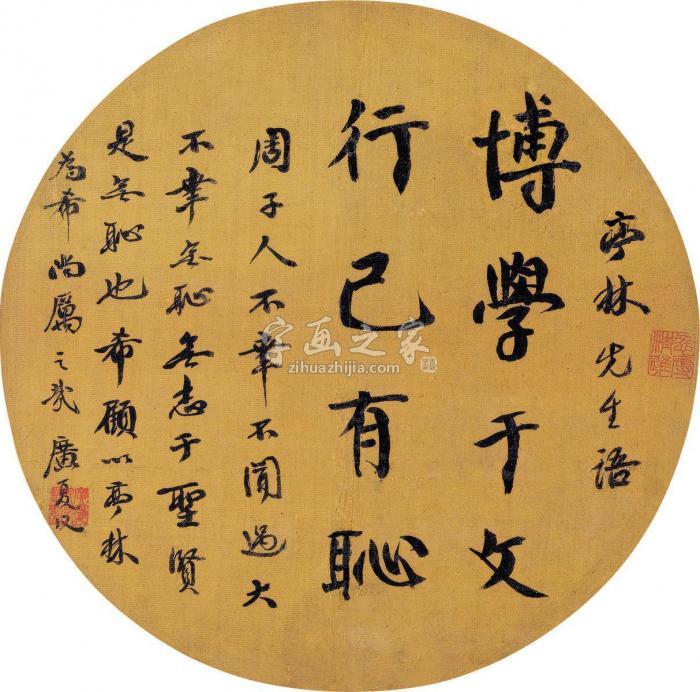 亭林先生語
博學于文
行己有恥
周子人不幸不聞過大
不幸無恥無志于聖賢
是無恥也希顧以亭林
為希尚之廣夏
字画之家
zihuazhijia.com